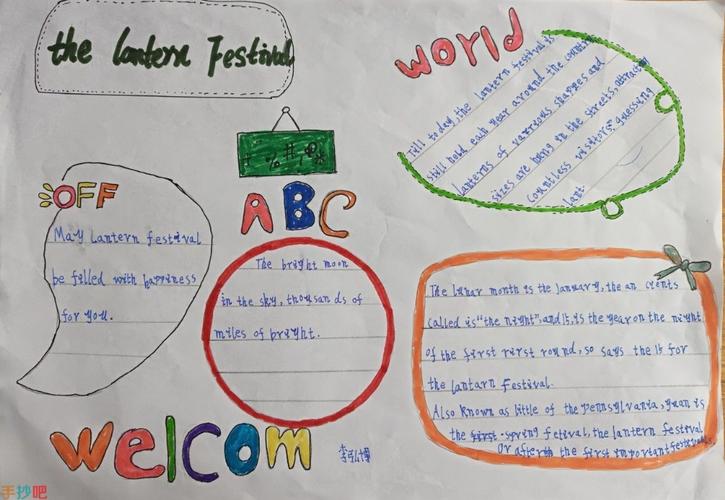 the Lantern Festival
world
Till today, the lantern festival is
still held each year around the country
lanterns of varrious shapnes and
sizes are being in the streets, attracting
countless visitors. guessing
lant
OFF
May Lantern festival
be filled with happiness
for you.
ABC
The bright moon
in the sky, thousands of
miles of bright.
The lunar month is the January, the an cients
called is "the night", and it, is the year on the night
of the first rirst round, so says the 15 for
the lantarn Festival.
Also known as little of the pennsylvania, yuan is
the first spring fetival, the lantern festival
or afterth the first important festivals
welcom
手抄吧